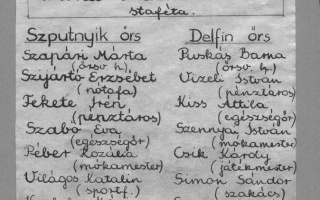 staféta.
Szputnyik örs
Delfin örs
Szapári Márta
(örsv. h.)
Szijártó Erzsébet
(nótafa)
Fekete Irén
(pénztáros)
Szabó Éva
(egészségőr)
Péber Rozália
(mókamester)
Világos Katalin
(sportf.)
Puskás Barna
(örsv. h.)
Vizeli István
(pénztáros)
Kiss Attila
(egészségőr)
Szennyai István
(mókamester)
Csik Károly
(játékmester)
Simon Sándor
(szakács)